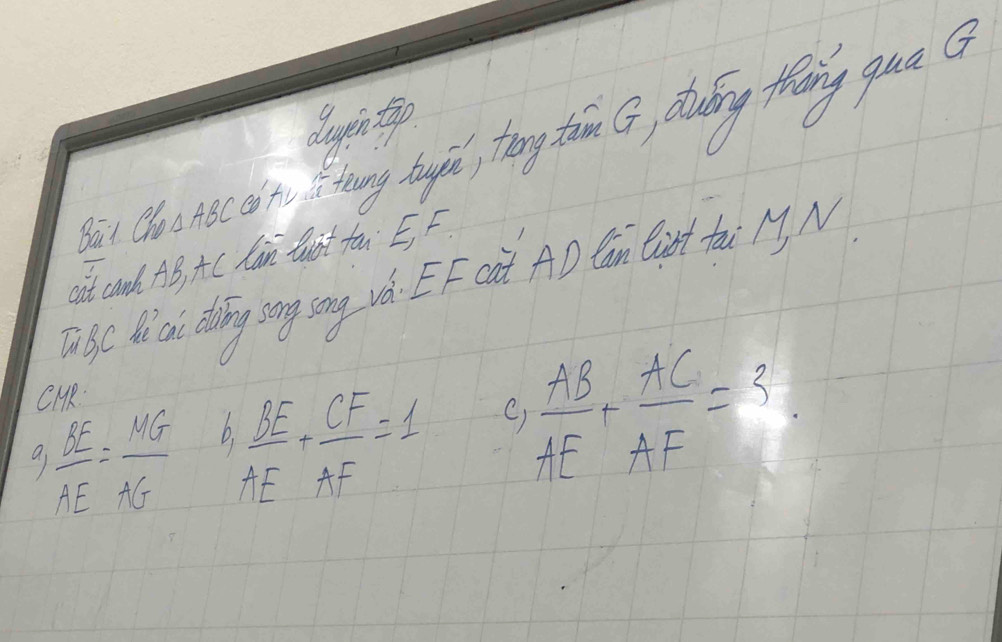 Luyện tập.
Bài 1 Cho △ ABC có AD là trung tuyến, trọng tâm G, đường thẳng qua G
cắt cạnh AB, AC lần lượt tại E, F.
Từ B, C kẻ các đường song song với EF cắt AD lần lượt tại M, N.
CMR:
a, BE/AE = MG/AG b, BE/AE + CF/AF = 1 c, AB/AE + AC/AF = 3.